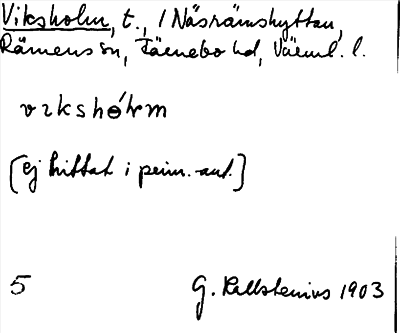 Viksholm, t., / Näsrämshyttan,
Rämens sn, Färnebo hd, Värml. l.
vɪkshɵ́ɫm
[ej hittat i prim.-ant.]
5 G. Kallstenius 1903